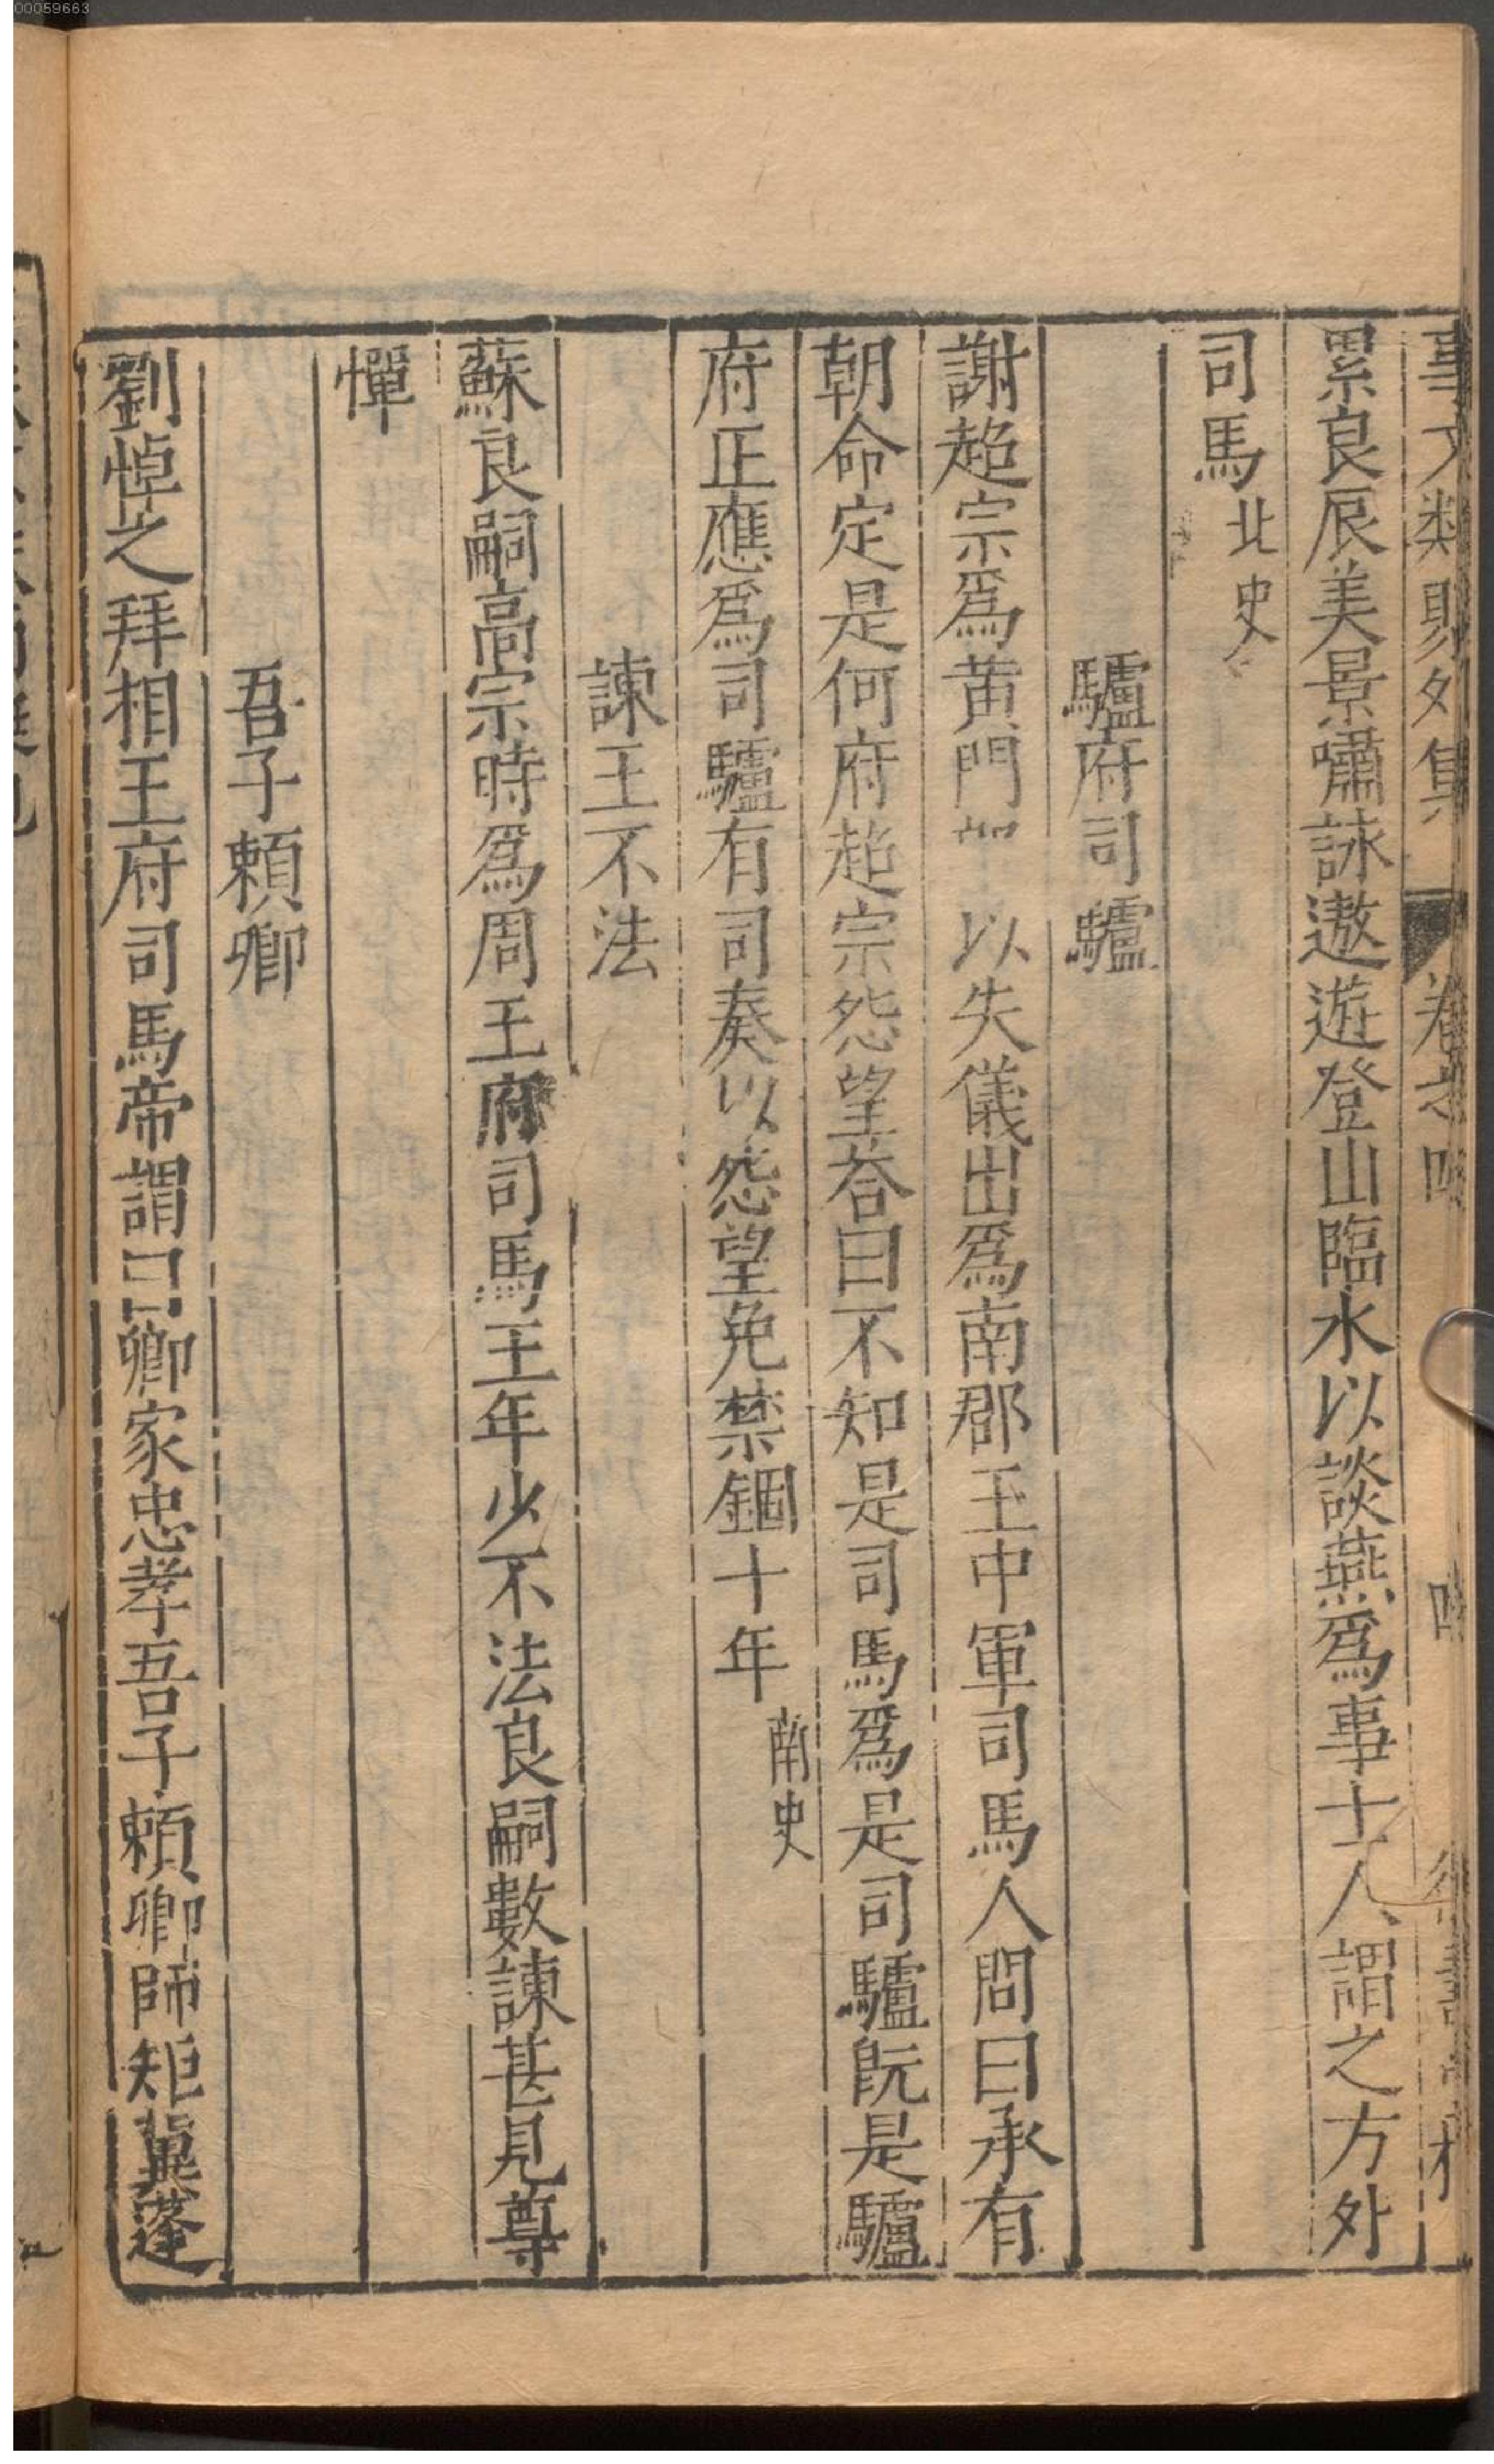 00059663
事文類聚外集 卷之四
累良辰美景嘯詠遨遊登山臨水以談燕爲事士人謂之方外
司馬北史
驢府司驢
謝超宗爲黄門郎以失儀出爲南郡王中軍司馬人問曰承有
朝命定是何府超宗怨望荅曰不知是司馬爲是司驢既是驢
府正應爲司驢有司奏以怨望免禁錮十年南史
諫王不法
蘇良嗣高宗時爲周王府司馬王年少不法良嗣數諫甚見尊
憚
吾子賴卿
劉悼之拜相王府司馬帝謂曰卿家忠孝吾子頼卿師矩冀蓬